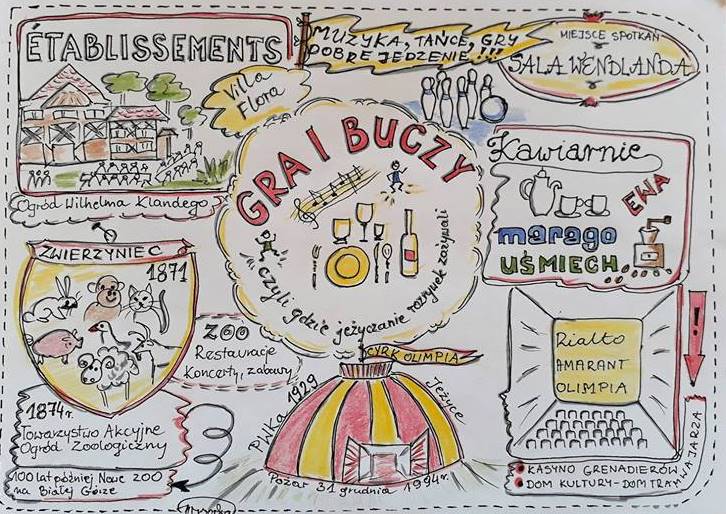 ÉTABLISSEMENTS
MUZYKA, TAŃCE, GRY
DOBRE JEDZENIE...!!!
MIEJSCE SPOTKAŃ
SALA WENDLANDA
Villa
Flora
Ogród Wilhelma Klandego
GRA I BUCZY
czyli gdzie jeżyczanie rozrywek zażywali
Kawiarnie
EWA
marago
UŚMIECH
ZWIERZYNIEC
1871
ZOO
Restauracje
Koncerty, zabawy
1874r.
Towarzystwo Akcyjne
Ogród Zoologiczny
100 lat później Nowe ZOO
na Białej Górze
CYRK OLIMPIA
Pylka 1929
Jeżyce
Pożar 31 grudnia 1994r.
Rialto
AMARANT
OLIMPIA
!
KASYNO GRENADIERÓW
DOM KULTURY-DOM TRAMWAJARZA